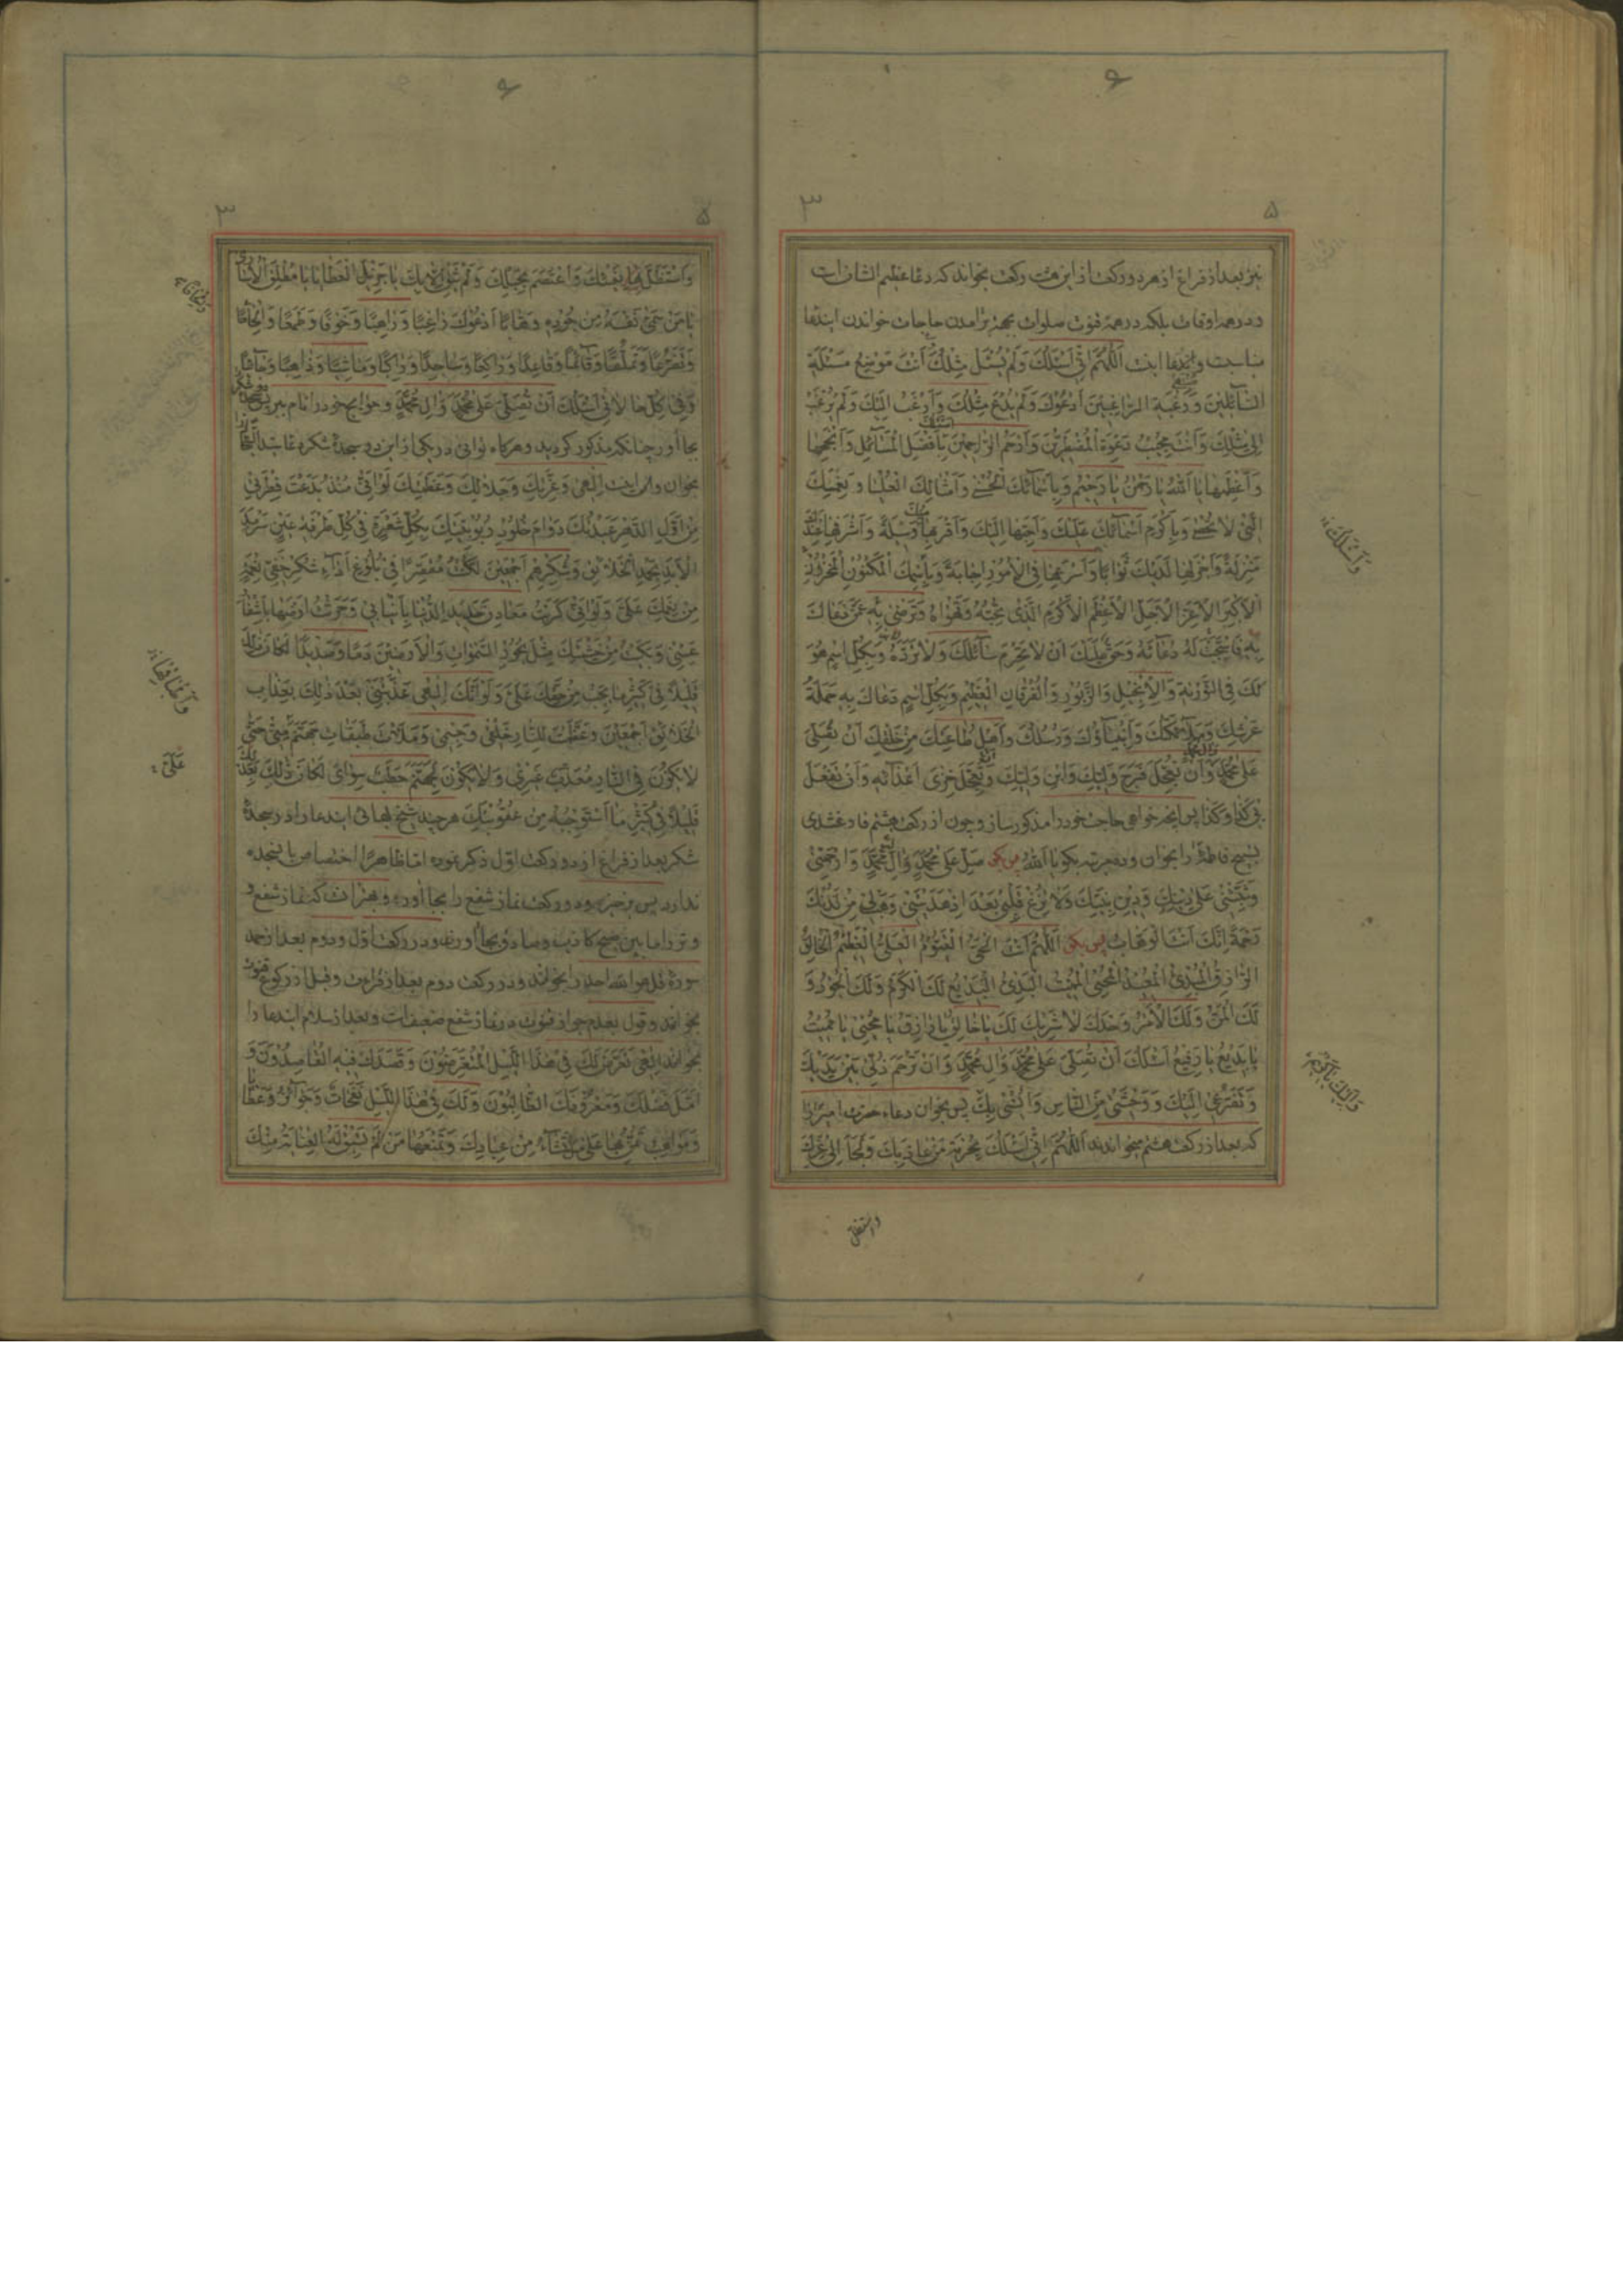 نیز بعد از فراغ از هر دو رکعت از این هشت رکعت بخواند که دعا عظیم الشان است
و در همه اوقات بلکه در همه قنوت صلوات بجهة برامدن حاجات خواندن ایندعا
مناسبت و ایندعا اینست اَللّٰهُمَّ اِنّی اَسْئَلُكَ وَلَمْ یُسْئَلْ مِثْلُكَ اَنْتَ مَوْضِعُ مَسْئَلَةِ
السّٰائِلینَ وَرَغْبَةِ الرّٰاغِبینَ اَدْعُوكَ وَلَمْ یُدْعَ مِثْلُكَ وَاَرْغَبُ اِلَیْكَ وَلَمْ یُرْغَبْ
اِلیٰ مِثْلِكَ وَاَنْتَ مُجیبُ دَعْوَةِ الْمُضْطَرّینَ وَاَرْحَمُ الرّٰاحِمینَ بِاَفْضَلِ الْمَسٰائِلِ وَاَنْجَحِهٰا
وَاَعْظَمِهٰا یٰا اَللّٰهُ یٰا رَحْمٰنُ یٰا رَحیمُ وَبِاَسْمٰائِكَ الْحُسْنیٰ وَاَمْثٰالِكَ الْعُلْیٰا وَنِعَمِكَ
الَّتی لٰا تُحْصیٰ وَبِاَكْرَمِ اَسْمٰائِكَ عَلَیْكَ وَاَحَبِّهٰا اِلَیْكَ وَاَقْرَبِهٰا مِنْكَ وَسیلَةً وَاَشْرَفِهٰا عِنْدَكَ
مَنْزِلَةً وَاَجْزَلِهٰا لَدَیْكَ ثَوٰابًا وَاَسْرَعِهٰا فِی الْاُمُورِ اِجٰابَةً وَبِاسْمِكَ الْمَكْنُونِ الْمَخْزُونِ
الْاَكْبَرِ الْاَعَزِّ الْاَجَلِّ الْاَعْظَمِ الْاَكْرَمِ الَّذی تُحِبُّهُ وَتَهْوٰاهُ وَتَرْضیٰ بِهِ عَمَّنْ دَعٰاكَ
بِهِ فَاسْتَجَبْتَ لَهُ دُعٰائَهُ وَحَقٌّ عَلَیْكَ اَنْ لٰا تَحْرِمَ سٰائِلَكَ وَلٰا تَرُدَّهُ وَبِكُلِّ اسْمٍ هُوَ
لَكَ فِی التَّوْرٰیةِ وَالْاِنْجیلِ وَالزَّبُورِ وَالْفُرْقٰانِ الْعَظیمِ وَبِكُلِّ اسْمٍ دَعٰاكَ بِهِ حَمَلَةُ
عَرْشِكَ وَمَلٰائِكَتُكَ وَاَنْبِیٰاؤُكَ وَرُسُلُكَ وَاَهْلُ طٰاعَتِكَ مِنْ خَلْقِكَ اَنْ تُصَلِّیَ
عَلیٰ مُحَمَّدٍ وَاٰلِ مُحَمَّدٍ وَاَنْ تُعَجِّلَ فَرَجَ وَلِیِّكَ وَابْنِ وَلِیِّكَ وَتُعَجِّلَ خِزْیَ اَعْدٰائِهِ وَاَنْ تَفْعَلَ
بی كَذٰا وَكَذٰا پس انچه خواهی حاجت خود را مذکور ساز و چون از رکعت هشتم فارغ شدی
تسبیح فاطمه را بخوان و ده مرتبه بکو یا اَللّٰهُ پس بکو صَلِّ عَلیٰ مُحَمَّدٍ وَاٰلِ مُحَمَّدٍ وَارْحَمْنی
وَثَبِّتْنی عَلیٰ دینِكَ وَدینِ نَبِیِّكَ وَلٰا تُزِغْ قَلْبی بَعْدَ اِذْ هَدَیْتَنی وَهَبْ لی مِنْ لَدُنْكَ
رَحْمَةً اِنَّكَ اَنْتَ الْوَهّٰابُ پس بکو اَللّٰهُمَّ اَنْتَ الْحَیُّ الْقَیُّومُ الْعَلِیُّ الْعَظیمُ الْخٰالِقُ
الرّٰازِقُ الْمُبْدِئُ الْمُعیدُ الْمُحْیِی الْمُمیتُ الْبَدیُ الْبَدیعُ لَكَ الْكَرَمُ وَلَكَ الْجُودُ وَ
لَكَ الْمَنُّ وَلَكَ الْاَمْرُ وَحْدَكَ لٰا شَریكَ لَكَ یٰا خٰالِقُ یٰا رٰازِقُ یٰا مُحْیی یٰا مُمیتُ
یٰا بَدیعُ یٰا رَفیعُ اَسْئَلُكَ اَنْ تُصَلِّیَ عَلیٰ مُحَمَّدٍ وَاٰلِ مُحَمَّدٍ وَاَنْ تَرْحَمَ ذُلّی بَیْنَ یَدَیْكَ
وَتَضَرُّعی اِلَیْكَ وَوَحْشَتی مِنَ النّٰاسِ وَاُنْسی بِكَ پس بخوان دعاء حضرت امیر را
که بعد از رکعت هشتم میخواندند اَللّٰهُمَّ اِنّی اَسْئَلُكَ بِحُرْمَةِ مَنْ عٰاذَ بِكَ وَلَجَأَ اِلیٰ عِزِّكَ
واستظل
وَاسْتَظَلَّ بِفَیْئِكَ وَاعْتَصَمَ بِحَبْلِكَ وَلَمْ یَثِقْ اِلّٰا بِكَ یٰا جَزیلَ الْعَطٰایٰا یٰا مُطْلِقَ الْاُسٰاریٰ
یٰا مَنْ سَمّیٰ نَفْسَهُ مِنْ جُودِهِ وَهّٰابًا اَدْعُوكَ رٰاغِبًا وَرٰاهِبًا وَخَوْفًا وَطَمَعًا وَاِلْحٰاحًا
وَتَضَرُّعًا وَتَمَلُّقًا وَقٰائِمًا وَقٰاعِدًا وَرٰاكِعًا وَسٰاجِدًا وَرٰاكِبًا وَمٰاشِیًا وَذٰاهِبًا وَجٰائِیًا
وَفی كُلِّ حٰالٰاتی اَسْئَلُكَ اَنْ تُصَلِّیَ عَلیٰ مُحَمَّدٍ وَاٰلِ مُحَمَّدٍ و حوایج خود را نام ببر پس سجده شکر
بجا آور چنانکه مذکور کردید و هرکاه توانی در یکی از این دو سجده شکر دعا
بخوان و ان اینست اِلٰهی وَعِزَّتِكَ وَجَلٰالِكَ وَعَظَمَتِكَ لَوْ اَنّی مُنْذُ بَدَعْتَ فِطْرَتی
مِنْ اَوَّلِ الدَّهْرِ عَبَدْتُكَ دَوٰامَ خُلُودِ رُبُوبِیَّتِكَ بِكُلِّ شَعْرَةٍ فی كُلِّ طَرْفَةِ عَیْنٍ سَرْمَدَ
الْاَبَدِ بِحَمْدِ الْخَلٰائِقِ وَشُكْرِهِمْ اَجْمَعینَ لَكُنْتُ مُقَصِّرًا فی بُلُوغِ اَدٰاءِ شُكْرِ خَفِیِّ نِعْمَةٍ
مِنْ نِعَمِكَ عَلَیَّ وَلَوْ اَنّی كَرَبْتُ مَعٰادِنَ حَدیدِ الدُّنْیٰا بِاَنْیٰابی وَحَرَثْتُ اَرَضیهٰا بِاَشْفٰارِ
عَیْنی وَبَكَیْتُ مِنْ خَشْیَتِكَ مِثْلَ بُحُورِ السَّمٰوٰاتِ وَالْاَرَضینَ دَمًا وَصَدیدًا لَكٰانَ ذٰلِكَ
قَلیلًا فی كَثیرِ مٰا یَجِبُ مِنْ حَقِّكَ عَلَیَّ وَلَوْ اَنَّكَ اِلٰهی عَذَّبْتَنی بَعْدَ ذٰلِكَ بِعَذٰابِ
الْخَلٰائِقِ اَجْمَعینَ وَعَظَّمْتَ لِلنّٰارِ خَلْقی وَجِسْمی وَمَلَأْتَ طَبَقٰاتِ جَهَنَّمَ مِنّی حَتّیٰ
لٰا یَكُونَ فِی النّٰارِ مُعَذَّبٌ غَیْری وَلٰا یَكُونَ لِجَهَنَّمَ حَطَبٌ سِوٰایَ لَكٰانَ ذٰلِكَ بِعَدْلِكَ
قَلیلًا فی كَثیرِ مٰا اسْتَوْجَبْتُهُ مِنْ عُقُوبَتِكَ هرچند شیخ بهائی ایندعا را در سجدۀ
شکر بعد از فراغ از دو رکعت اوّل ذکر نموده اما ظاهرًا اختصاص بان سجده
ندارد پس برخیزد و دو رکعت نماز شفع را بجا آورد و بهتر انست که نماز شفع و
وتر را ما بین صبح کاذب و صادق بجا آورد و در رکعت اوّل و دوم بعد از حمد
سورۀ قل هو الله احد را بخواند و در رکعت دوم بعد از قرائت و قبل از رکوع قنوت
بخواند و قول بعدم جواز قنوت در نماز شفع ضعیفست و بعد از سلام ایندعا را
بخواند اِلٰهی تَعَرَّضَ لَكَ فی هٰذَا اللَّیْلِ الْمُتَعَرِّضُونَ وَقَصَدَكَ فیهِ الْقٰاصِدُونَ وَ
اَمَّلَ فَضْلَكَ وَمَعْرُوفَكَ الطّٰالِبُونَ وَلَكَ فی هٰذَا اللَّیْلِ نَفَحٰاتٌ وَجَوٰائِزُ وَعَطٰایٰا
وَمَوٰاهِبُ تَمُنُّ بِهٰا عَلیٰ مَنْ تَشٰاءُ مِنْ عِبٰادِكَ وَتَمْنَعُهٰا مَنْ لَمْ تَسْبِقْ لَهُ الْعِنٰایَةُ مِنْكَ